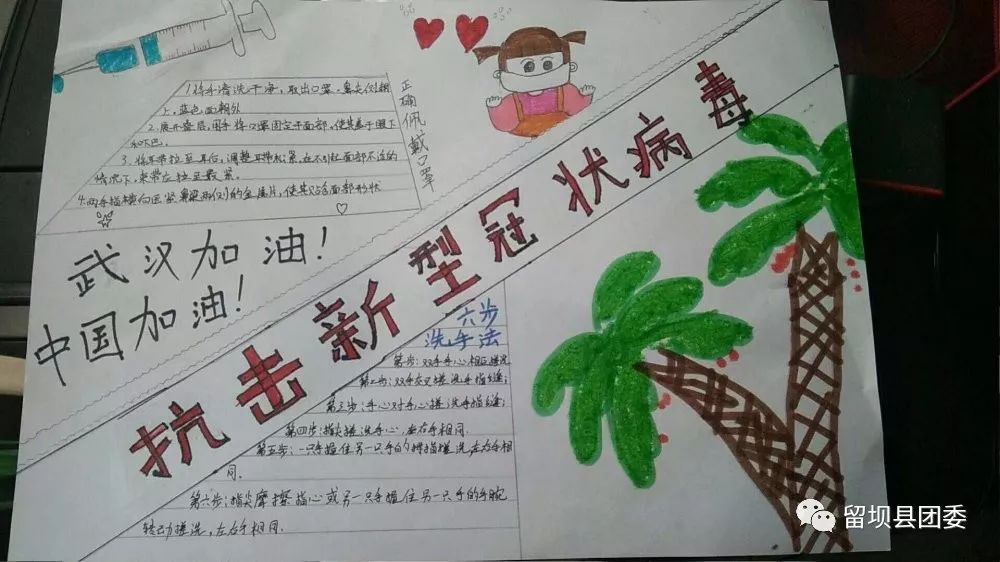 1.将手清洗干净，取出口罩，鼻尖侧朝
上，蓝色面朝外
2.展开叠层，用手将口罩固定于面部，使其盖于眼下
和下巴。
3.将耳带拉至耳后，调整耳带松紧，在不引起面部不适的
情况下，束带应拉至最紧。
4.两手指横向压紧鼻梁两侧的金属片，使其贴合面部形状
正确佩戴口罩
武汉加油！
中国加油！
抗击新型冠状病毒
六步
洗手法
第一步：双手手心相互搓洗
第二步：双手交叉搓洗手指缝；
第三步：手心对手心搓洗手指缝；
第四步：指尖搓洗手心，左右手相同.
第五步：一只手握住另一只手的拇指搓洗，左右手相
同.
第六步：指尖摩擦指心或另一只手握住另一只手的手腕
转动搓洗，左右手相同.
留坝县团委